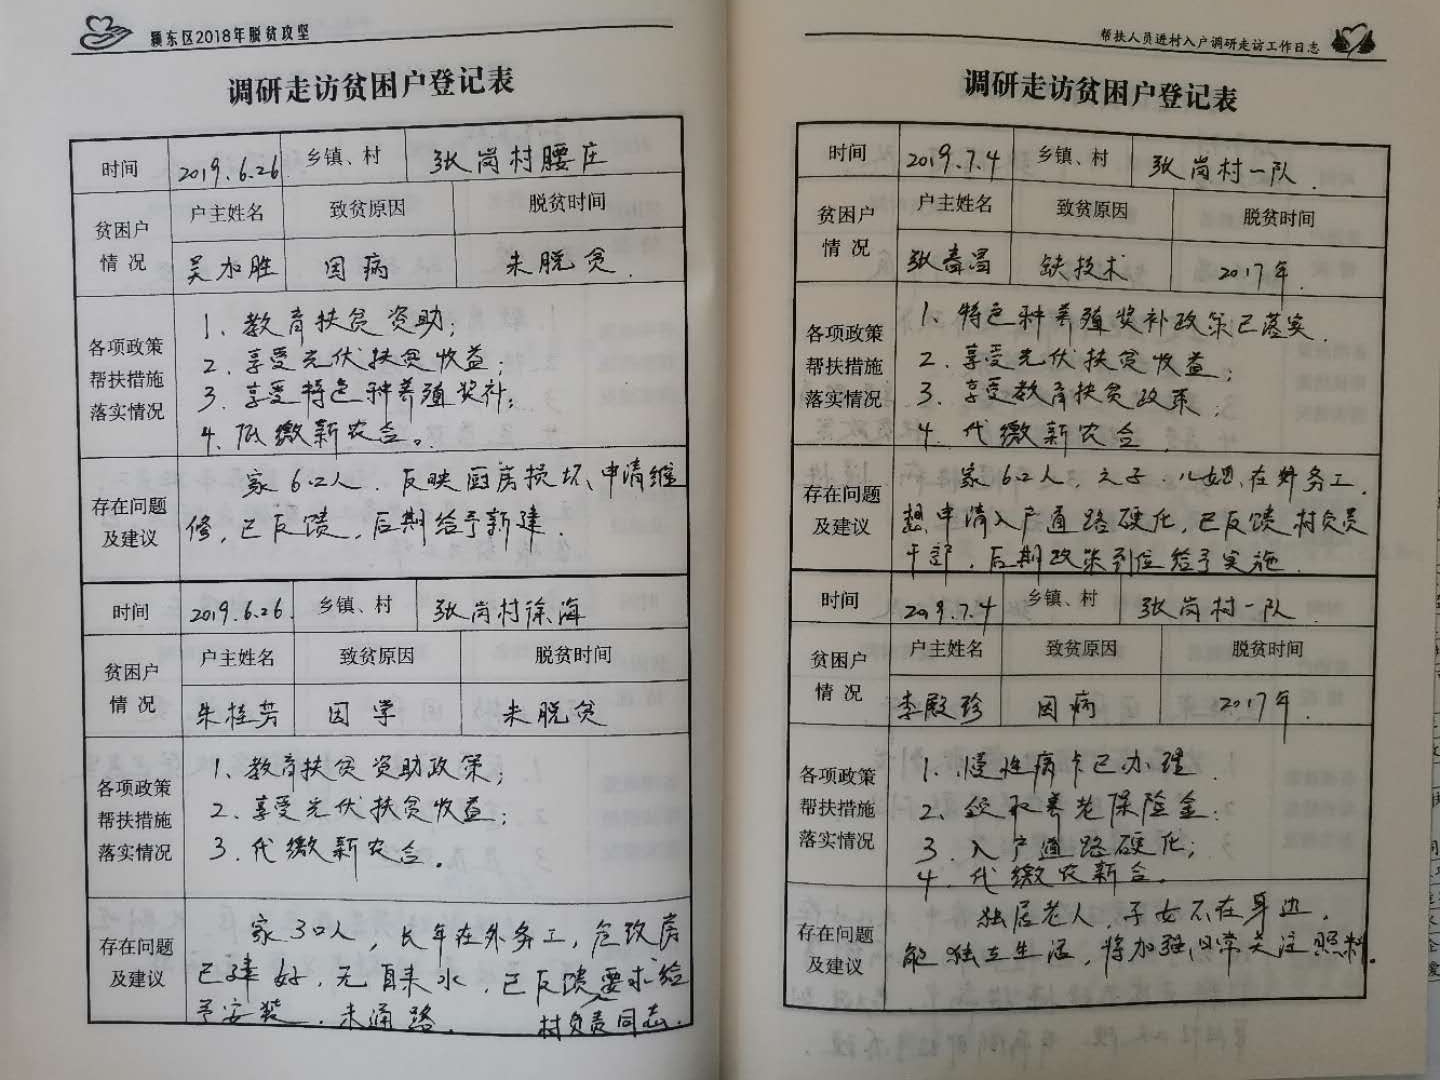 颍东区2018年脱贫攻坚
调研走访贫困户登记表
时间 2019.6.26. 乡镇、村 张岗村腰庄
贫困户情况 户主姓名 致贫原因 脱贫时间
吴加胜 因病 未脱贫.
各项政策帮扶措施落实情况
1、教育扶贫资助;
2、享受光伏扶贫收益;
3、享受特色种养殖奖补;
4、代缴新农合。
存在问题及建议
家6口人,反映厨房损坏、申请维
修,已反馈,后期给予新建.
时间 2019.6.26. 乡镇、村 张岗村徐海
贫困户情况 户主姓名 致贫原因 脱贫时间
朱桂芳 因学 未脱贫
各项政策帮扶措施落实情况
1、教育扶贫资助政策;
2、享受光伏扶贫收益;
3、代缴新农合。
存在问题及建议
家3口人,长年在外务工,危改房
已建好,无自来水,已反馈要求给
予安装.未通路. 村负责同志.
帮扶人员进村入户调研走访工作日志
调研走访贫困户登记表
时间 2019.7.4 乡镇、村 张岗村一队.
贫困户情况 户主姓名 致贫原因 脱贫时间
张 缺技术 2017年.
各项政策帮扶措施落实情况
1、特色种养殖奖补政策已落实.
2、享受光伏扶贫收益;
3、享受教育扶贫政策;
4、代缴新农合.
存在问题及建议
家6口人,之子、儿媳、在外务工.
想申请入户道路硬化,已反馈村负责
干部,后期政策到位给予实施.
时间 2019.7.4 乡镇、村 张岗村一队.
贫困户情况 户主姓名 致贫原因 脱贫时间
李殿珍 因病 2017年.
各项政策帮扶措施落实情况
1、慢性病卡已办理.
2、领取养老保险金;
3、入户道路硬化;
4、代缴农新合。
存在问题及建议
独居老人,子女不在身边.
能独立生活,将加强日常关注照料。